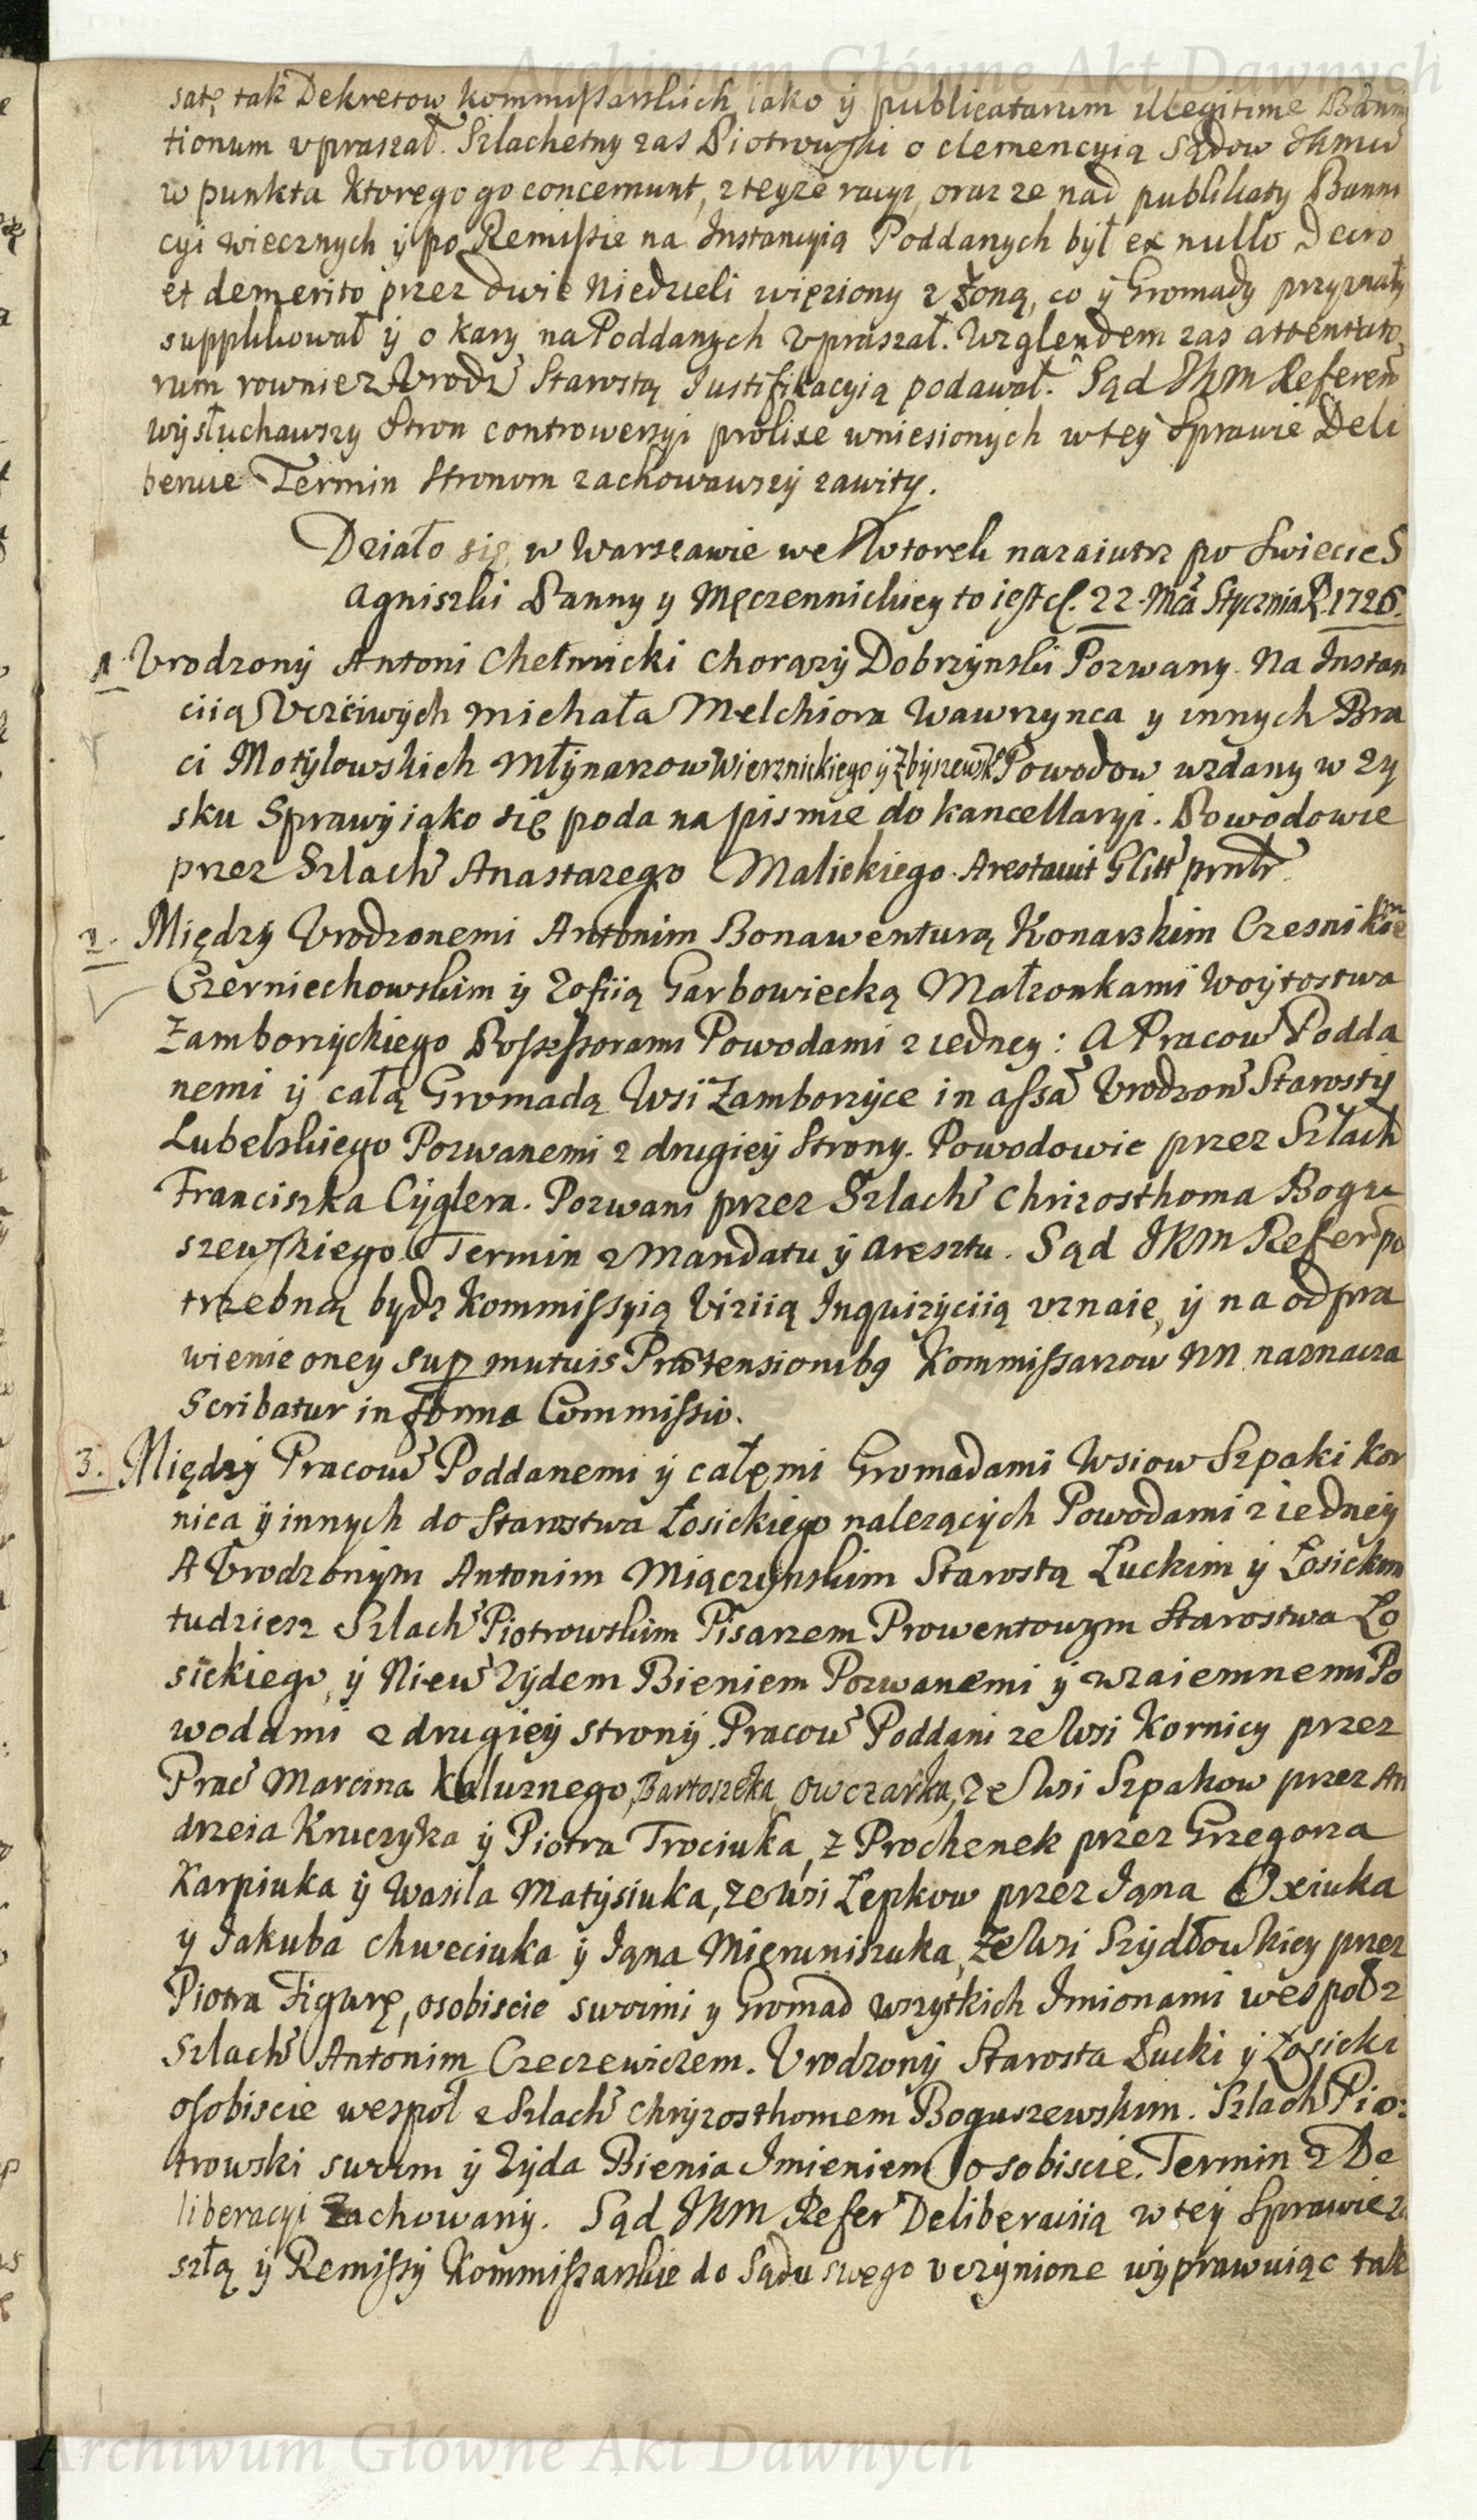 Archiwum Główne Akt Dawnych
satę tak Dekretow kommissarskich iako ÿ publicatarum illegitime Banni
tionum vpraszał. Szlachetny zas Piotrowski o clemencyią Sądow
w punkta Ktorego go concernunt, z teyze racyi, oraz ze nad publikaty Banni
cyi wiecznych ÿ po Remissie na Instancyią Poddanych był ex nullo
et demerito przez dwie Niedzieli więziony z Zoną, co ÿ Gromady przyznały
supplikował ÿ o kary na Poddanych vpraszał. Wzglendem zas attentato
rum rowniez Vrodz Starostą Justifikacyią podawał. Sąd JKM Referen
wÿsłuchawszy Stron controwersyi prolixe wniesionych w teÿ Sprawie Deli
beruie Termin Stronom zachowawszÿ zawity.
Działo się w Warszawie we Wtorek nazaiutrz po Swiecie S
Agniszki Panny y Męczennickiey to iest d. 22. Mca Stycznia R. 1726.
1 Vrodzonÿ Antoni Chełmicki Chorązÿ Dobrzÿnski Pozwany. Na Instan
ciią Vczciwÿch Michała Melchiora Wawrzynca y innych Bra
ci Motÿlowskich Młÿnarzow Wiersnickiego ÿ Zbyszewsk Powodow wzdany w zy
sku Sprawÿ iąko się poda na pismie do kancellaryi. Powodowie
przez Szlach Anastazego Malickiego. Arestauit Glitt prntr.
2. Międzÿ Vrodzonemi Antonim Bonawenturą Konarskim Czesnikm
Czerniechowskim ÿ Zofiią Garbowiecką Małzonkami Woÿtostwa
Zamborzÿckiego Possessorami Powodami z iedney: A Pracow Podda
nemi ÿ całą Gromadą Wsi Zamborzÿce in assa Vrodzon Starostÿ
Lubelskiego Pozwanemi z drugieÿ Strony. Powodowie przez Szlach
Franciszka Cÿglera. Pozwani przez Szlach Chrizosthoma Bogu
szewskiego. Termin z Mandatu ÿ Aresztu. Sąd JKM Refer po
trzebną bydz Kommissyią Viziią Inquizÿciią vznaie, ÿ na odpra
wienie oney sup mutuis Prætensionibg Kommissarzow NN naznacza
Scribatur in forma Commissio.
3. Międzÿ Pracow Poddanemi ÿ całęmi Gromadami Wsiow Szpaki Kor
nica ÿ innych do Starostwa Łosickiego nalezącÿch Powodami z iedneÿ
A Vrodzonÿm Antonim Miączÿnskim Starostą Łuckim ÿ Łosickim
tudziesz Szlach Piotrowskim Pisarzem Prowentowym Starostwa Ło
sickiego, ÿ Niew Zÿdem Bieniem Pozwanemi ÿ wzaiemnemi Po
wodami z drugieÿ stronÿ. Pracow Poddani ze Wsi Kornicy przez
Prac Marcina Kaluznego, Bartoszeka Owczarka, ze Wsi Szpakow przez An
drzeia Kruczyka ÿ Piotra Trociuka, z Prochenek przez Grzegorza
Karpiuka ÿ Wasila Matÿsiuka, ze Wsi Łepkow przez Iąna Oxiuka
y Jakuba Chweciuka ÿ Iąna Mieruniszuka, ze Wsi Szÿdłowkiey przez
Piotra Figurę, osobiscie swoimi y Gromad wszytkich Imionami wespoł z
Szlach Antonim Czeczewiczem. Vrodzonÿ Starosta Łucki ÿ Łosicki
osobiscie wespoł z Szlach Chrÿzosthomem Boguszewskim. Szlach Pio:
trowski swoim ÿ Zÿda Bienia Imieniem osobiscie. Termin z De
liberacyi Zachowanÿ. Sąd JKM Refer Deliberaciią w teÿ Sprawie z
szłą ÿ Remissÿ Kommissarskie do Sądu swego vczÿnione wÿprawuiąc tak
Archiwum Główne Akt Dawnych